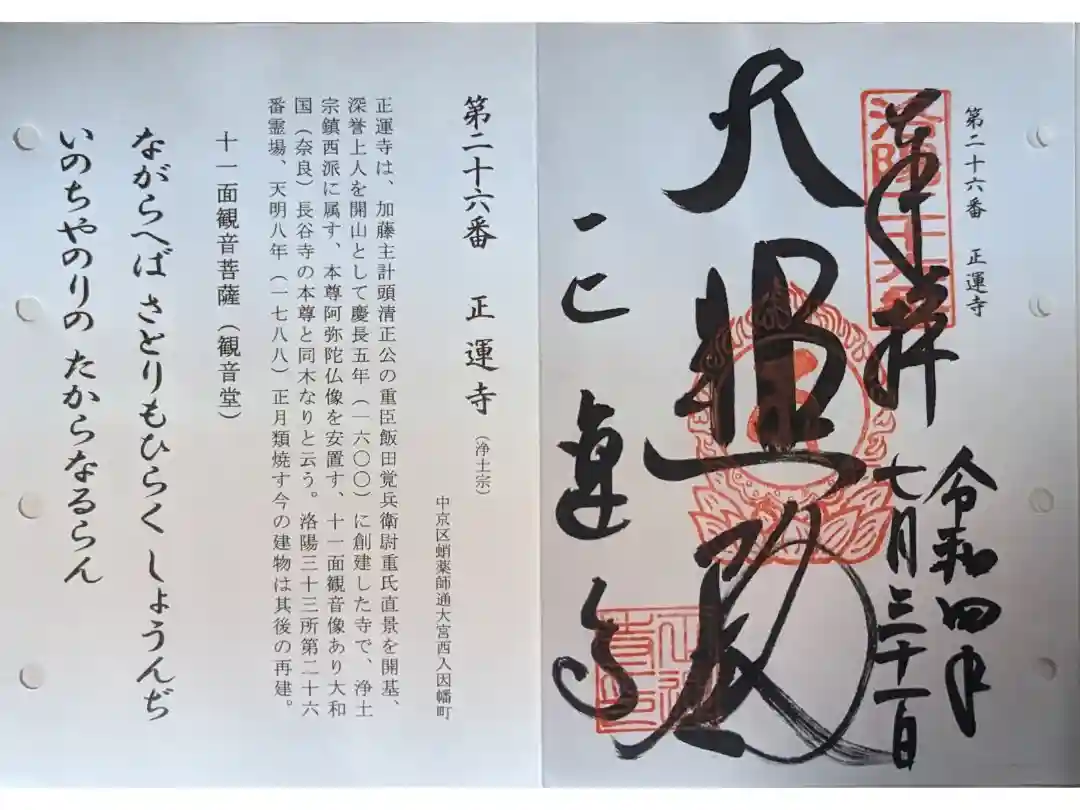 第二十六番　正運寺
奉拝
令和四年
七月三十一日
大悲殿
正運寺
洛陽二十六番
第二十六番　正運寺（浄土宗）
中京区蛸薬師通大宮西入因幡町
正運寺は、加藤主計頭清正公の重臣飯田覚兵衛尉重氏直景を開基、
深誉上人を開山として慶長五年（一六〇〇）に創建した寺で、浄土
宗鎮西派に属す、本尊阿弥陀仏像を安置す、十一面観音像あり大和
国（奈良）長谷寺の本尊と同木なりと云う。洛陽三十三所第二十六
番霊場、天明八年（一七八八）正月類焼す今の建物は其後の再建。
十一面観音菩薩（観音堂）
ながらへば さとりもひらく しょうんぢ
いのちやのりの たからなるらん